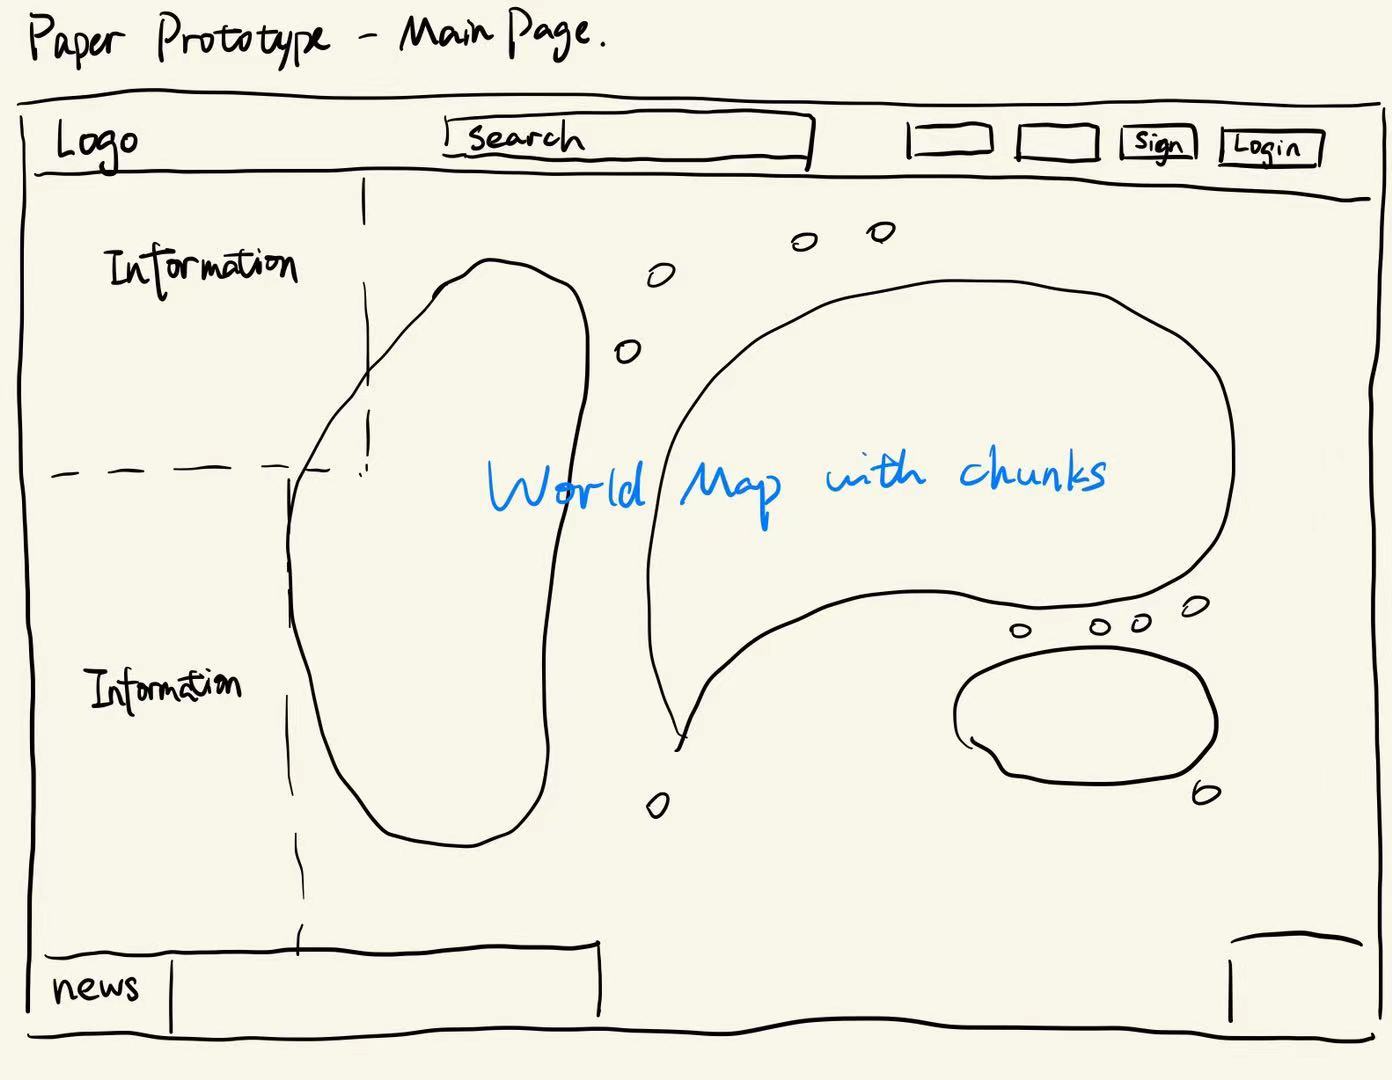 Paper Prototype - Main Page.
Logo
Search
Sign
Login
Information
World Map with chunks
Information
news